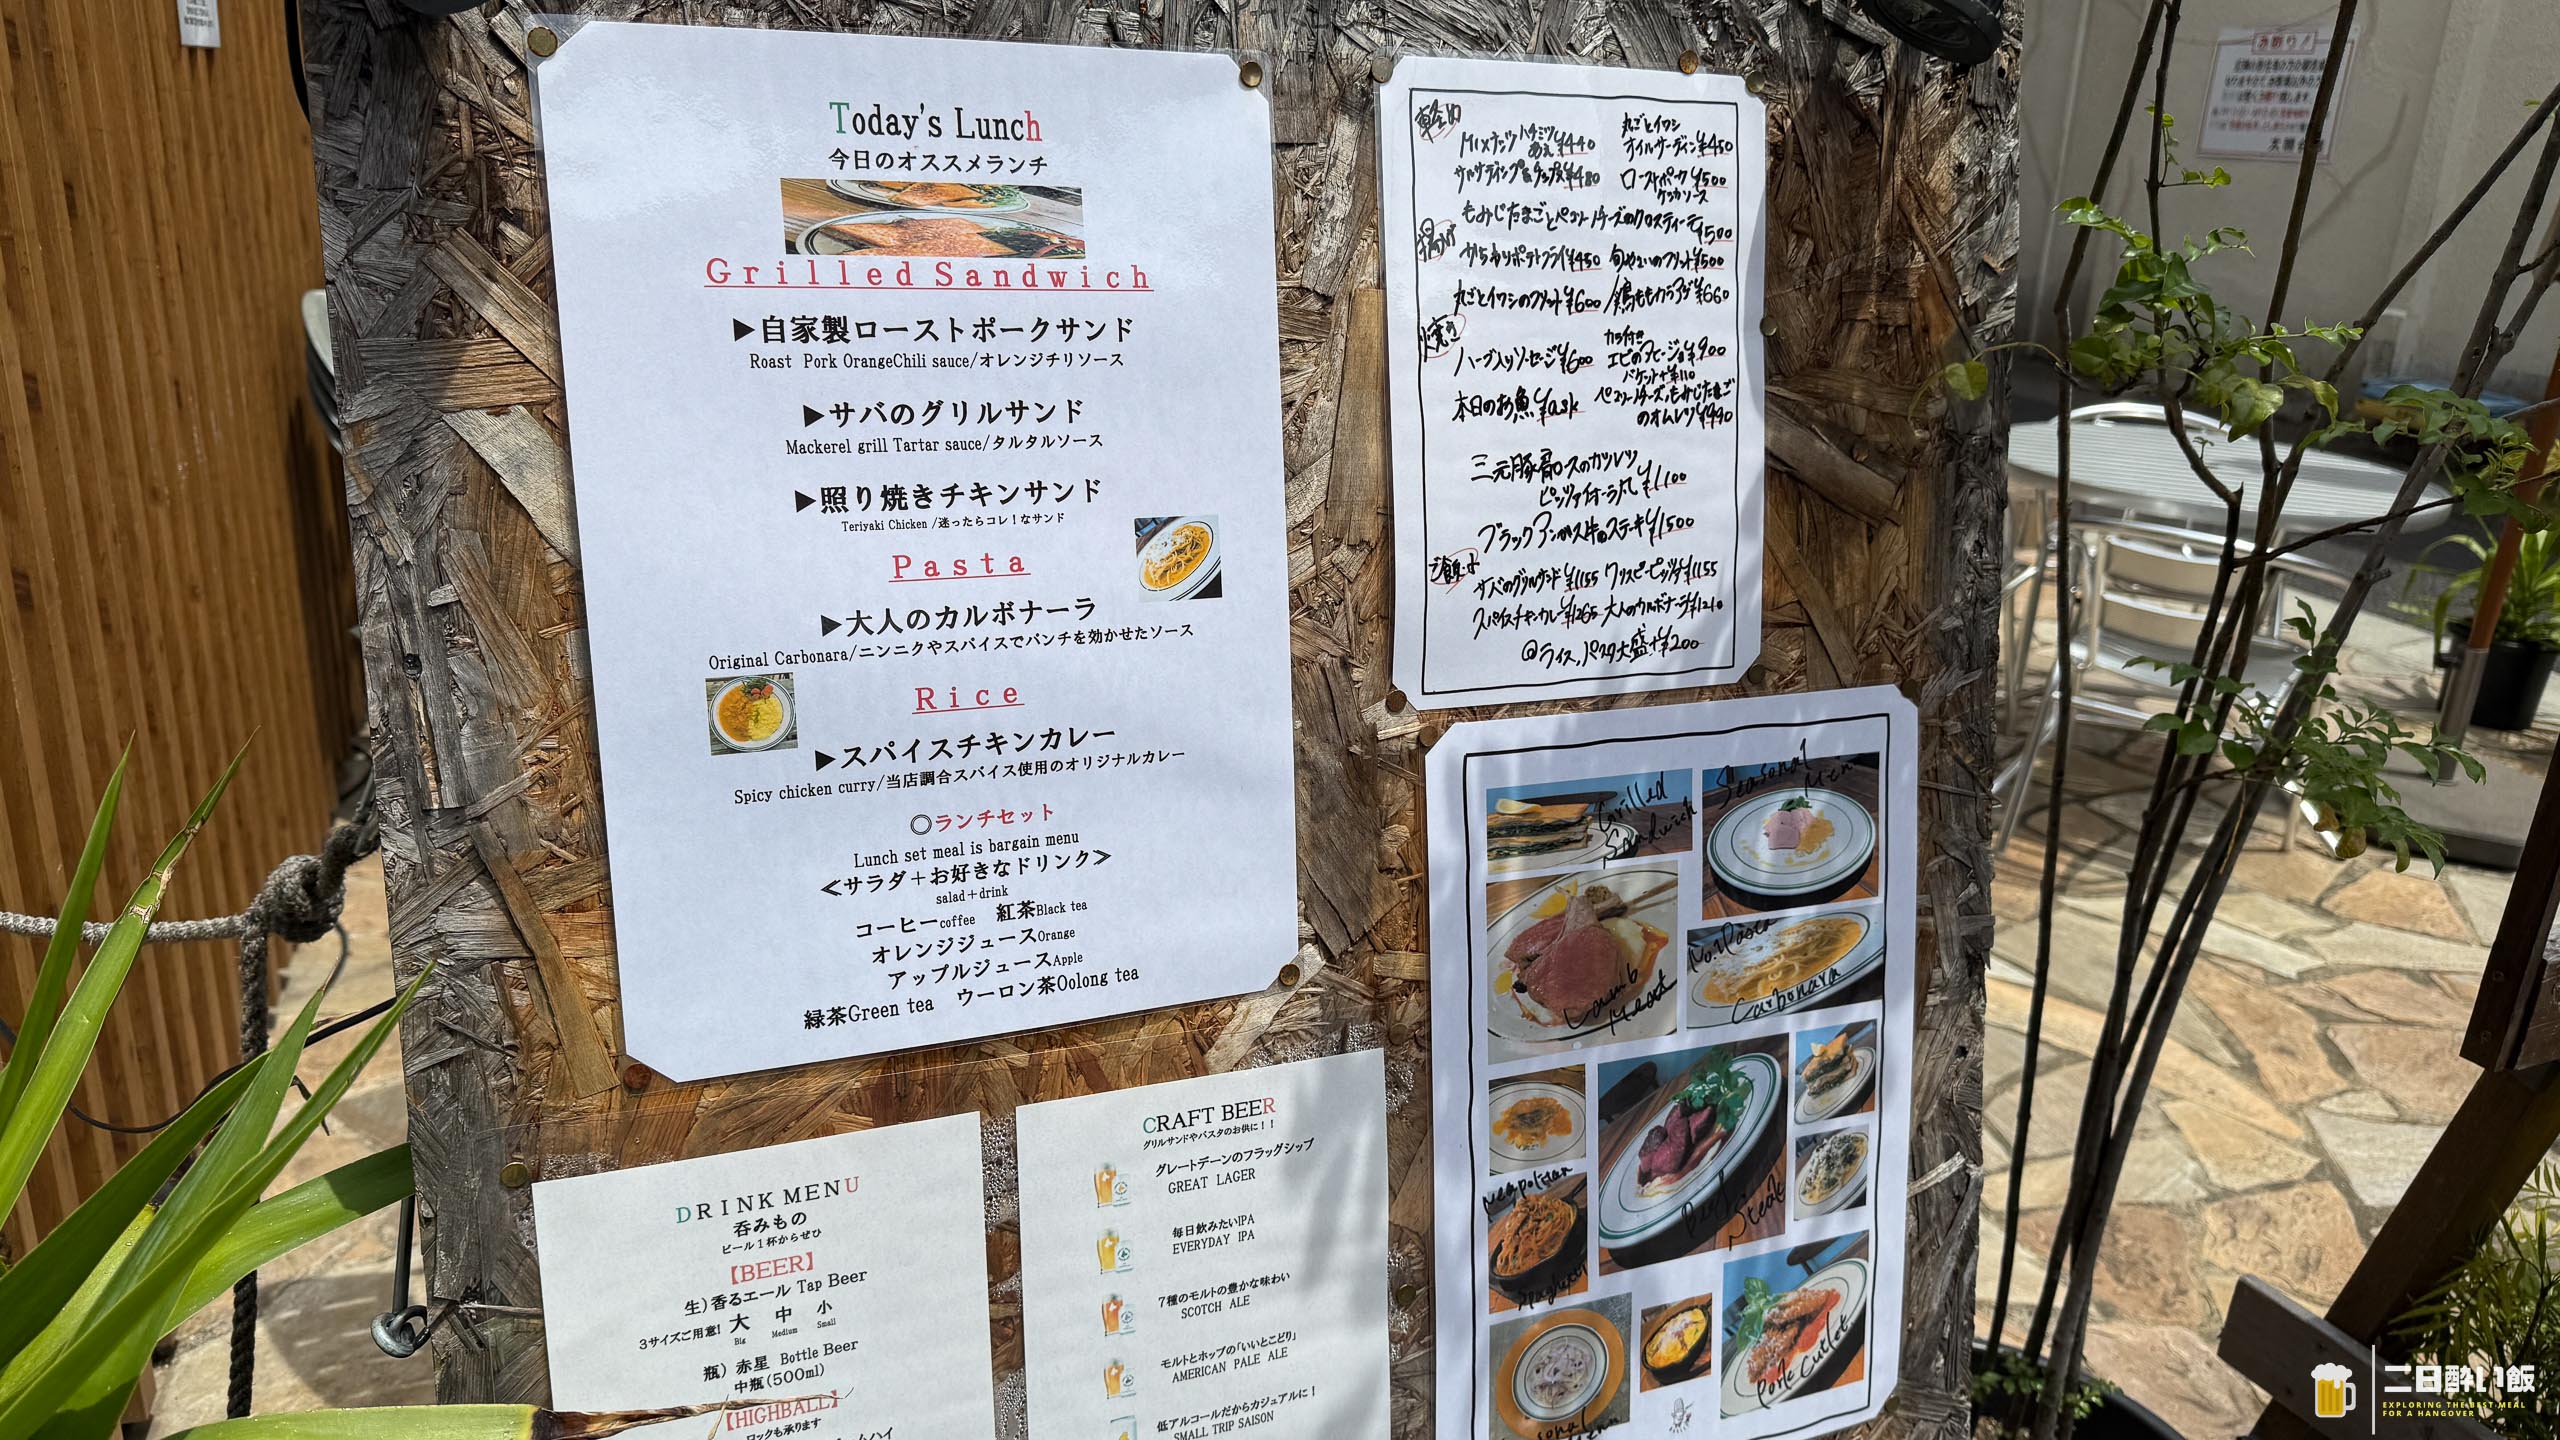 Today's Lunch
今日のオススメランチ
Grilled Sandwich
▶自家製ローストポークサンド
Roast Pork OrangeChili sauce/オレンジチリソース
▶サバのグリルサンド
Mackerel grill Tartar sauce/タルタルソース
▶照り焼きチキンサンド
Teriyaki Chicken /迷ったらコレ！なサンド
Pasta
▶大人のカルボナーラ
Original Carbonara/ニンニクやスパイスでパンチを効かせたソース
Rice
▶スパイスチキンカレー
Spicy chicken curry/当店調合スパイス使用のオリジナルカレー
◎ランチセット
Lunch set meal is bargain menu
≪サラダ＋お好きなドリンク≫
salad＋drink
コーヒーcoffee 紅茶Black tea
オレンジジュースOrange
アップルジュースApple
緑茶Green tea ウーロン茶Oolong tea
軽め
MIXナッツ ハチミツあえ ¥440
丸ごとイワシ
オイルサーディン ¥450
サルサディップ&チップス ¥480
ローストポーク ¥500
もみじたまごとペコリーノチーズのクロスティーニ ¥500
揚げ
かちわりポテトフライ ¥450 旬やさいのフリット ¥500
丸ごとイワシのフリット ¥600 鶏ももカラアゲ ¥660
焼き
ハーブ入りソーセージ ¥600
カラ付き
エビのアヒージョ ¥900
バケット+¥110
本日のお魚 ¥ask
ペコリーノチーズ、もみじたまご
のオムレツ ¥990
三元豚肩ロースのカツレツ
ピッツァイオーラ風 ¥1100
ブラックアンガス牛のステーキ ¥1500
サバのグリルサンド ¥1155 クリスピーピッツァ ¥1155
スパイスチキンカレー ¥1265 大人のカルボナーラ ¥1210
@ライス、パスタ大盛+¥200
Grilled
Sandwich
Seasonal
Men
Lamb
Meat
No.1 Pasta
Carbonara
Neapolitan
Spaghetti
Beef
Steak
Pork Cutlet
DRINK MENU
呑みもの
ビール１杯からぜひ
【BEER】
生）香るエール Tap Beer
３サイズご用意！ 大 中 小
Big Medium Small
瓶）赤星 Bottle Beer
中瓶（500ml）
【HIGHBALL】
ロックも承ります
CRAFT BEER
グリルサンドやパスタのお供に！！
グレートデーンのフラッグシップ
GREAT LAGER
毎日飲みたいIPA
EVERYDAY IPA
７種のモルトの豊かな味わい
SCOTCH ALE
モルトとホップの「いいとこどり」
AMERICAN PALE ALE
低アルコールだからカジュアルに！
SMALL TRIP SAISON
二日酔い飯
EXPLORING THE BEST MEAL
FOR A HANGOVER